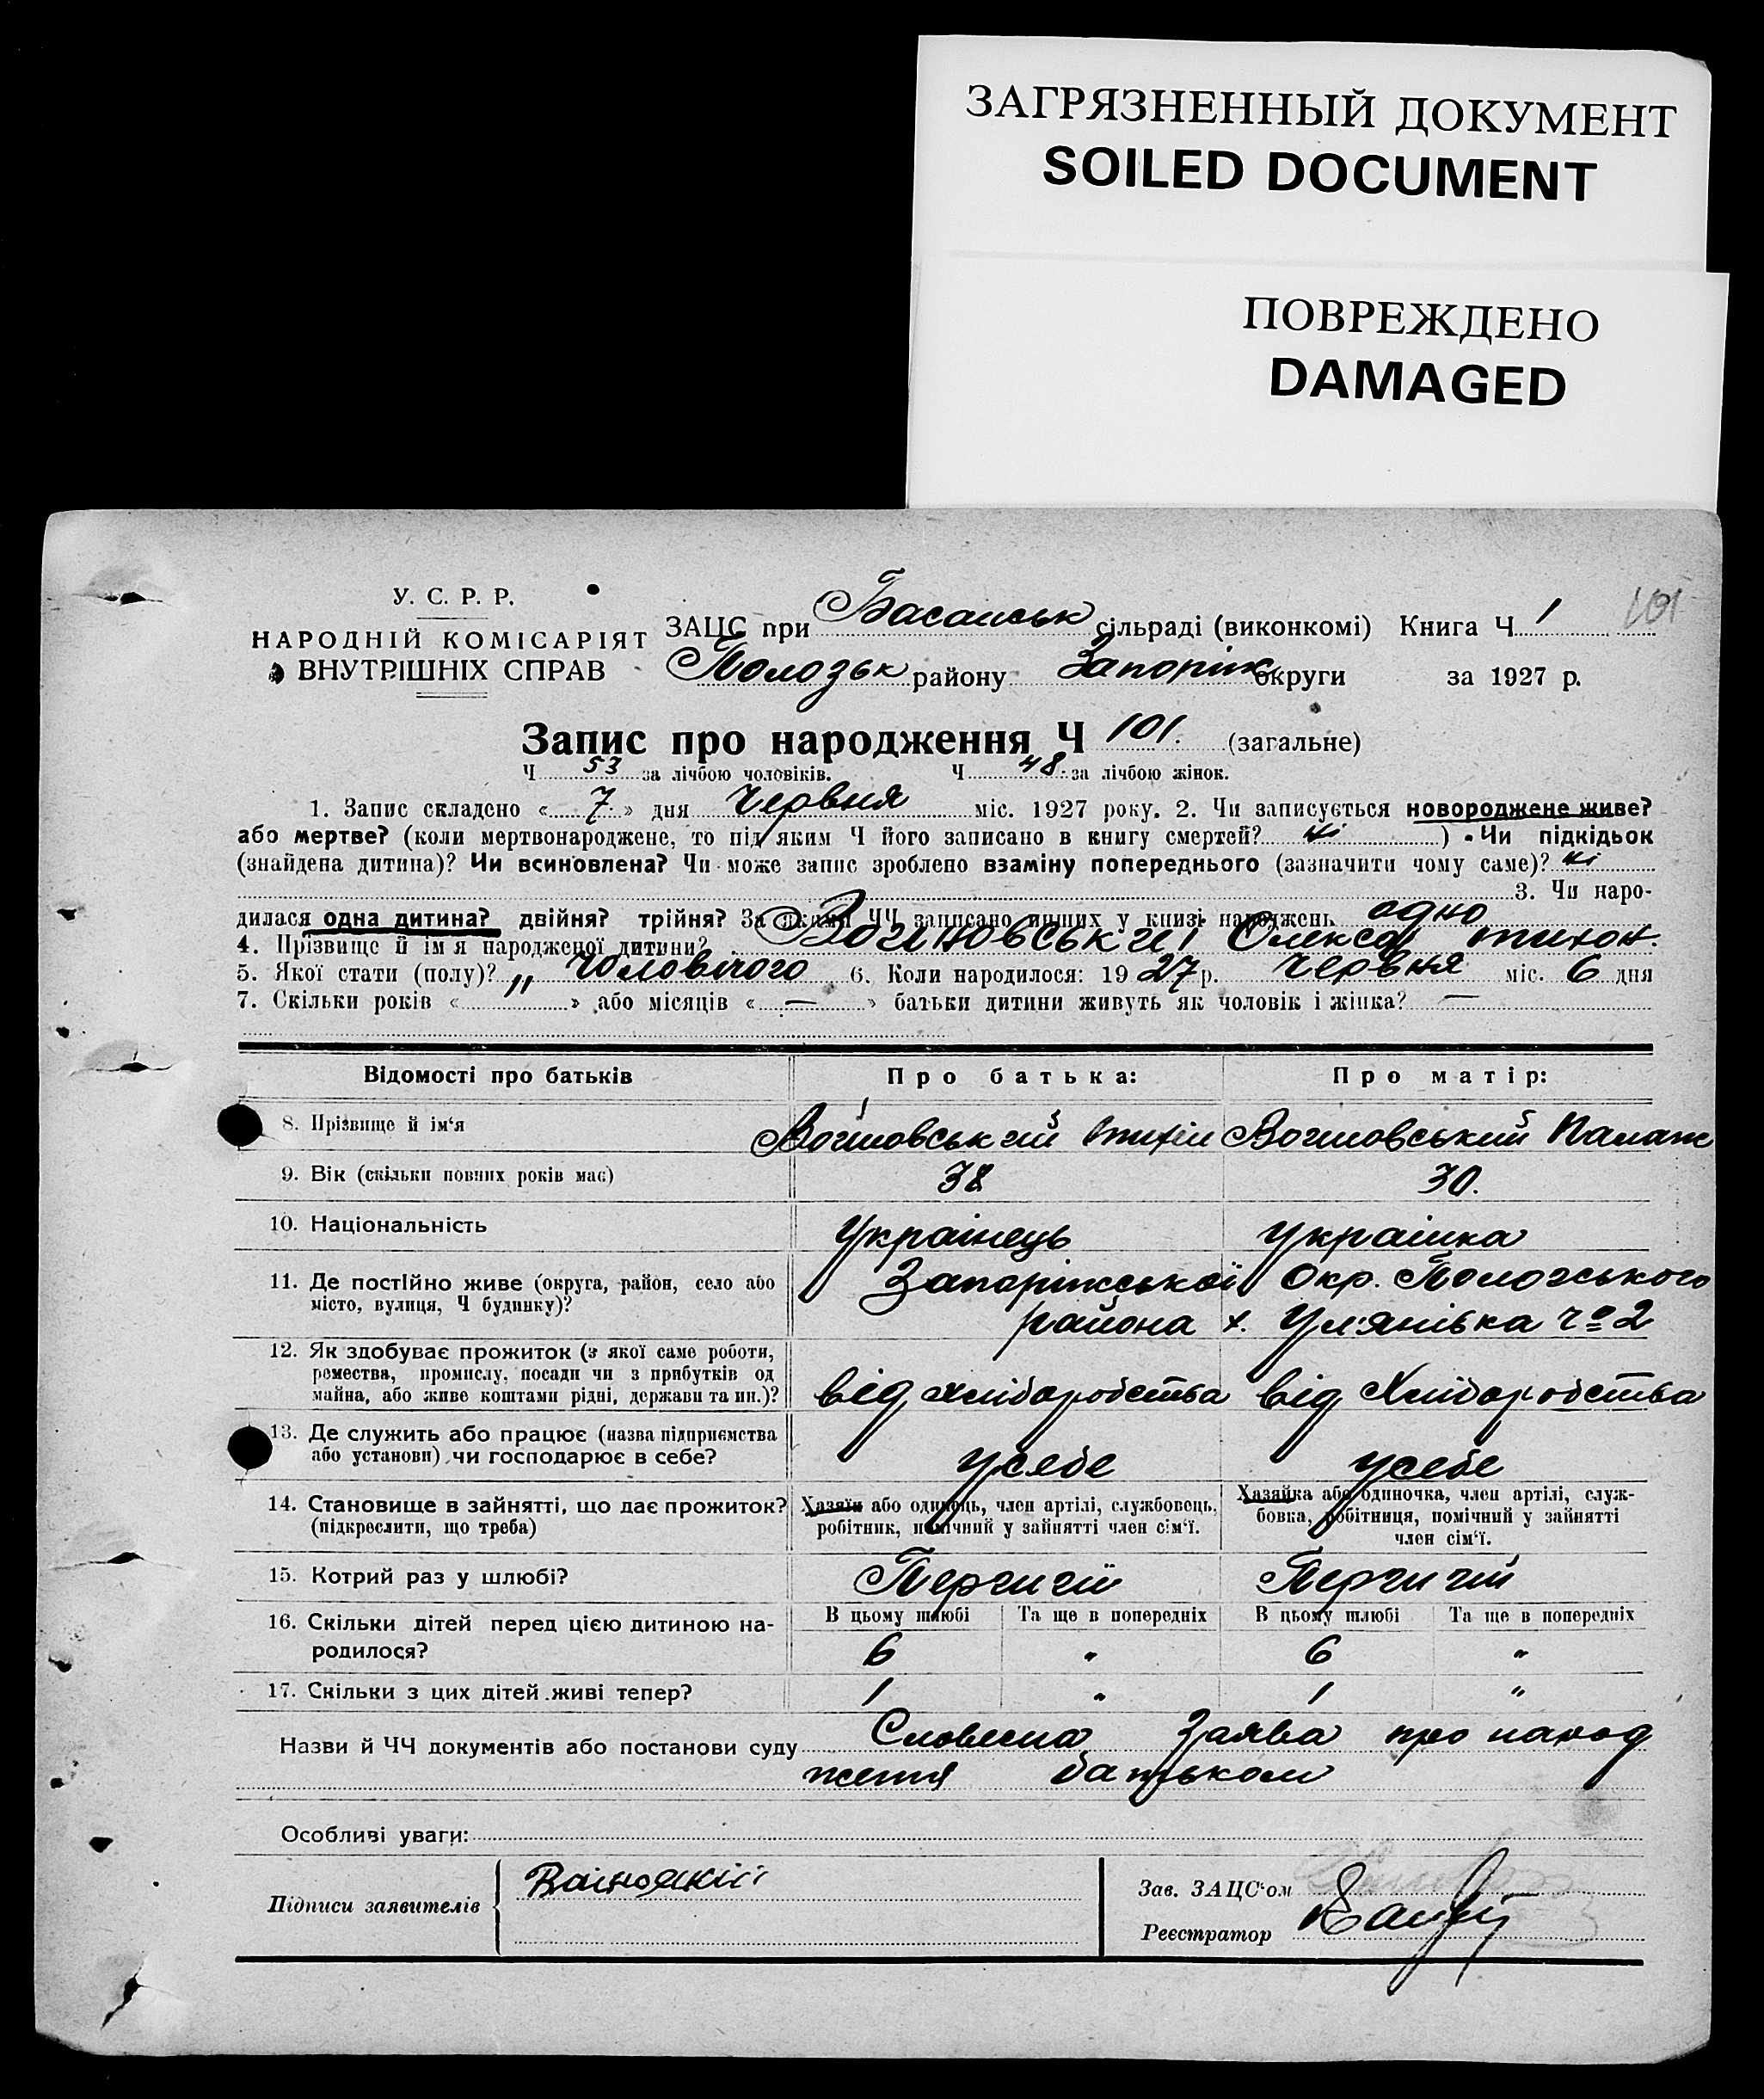 ЗАГРЯЗНЕННЫЙ ДОКУМЕНТ
SOILED DOCUMENT
ПОВРЕЖДЕНО
DAMAGED
У. С. Р. Р.
НАРОДНІЙ КОМІСАРІЯТ
ВНУТРІШНІХ СПРАВ
ЗАЦС при Басанськ сільраді (виконкомі) Книга Ч 1 101
Полозьк району Запоріж округи за 1927 р.
Запис про народження Ч 101. (загальне)
Ч 53 за лічбою чоловіків. Ч 48. за лічбою жінок.
1. Запис складено « 7. » дня Червня міс. 1927 року. 2. Чи записується новороджене живе?
або мертве? (коли мертвонароджене, то під яким Ч його записано в книгу смертей? ні ) Чи підкідьок
(знайдена дитина)? Чи всиновлена? Чи може запис зроблено взаміну попереднього (зазначити чому саме)? ні
3. Чи наро-
дилася одна дитина? двійня? трійня? За якими ЧЧ записано инших у книзі народжень одно
4. Прізвище й ім'я народженої дитини? Олексій тихон.
5. Якої стати (полу)? „ Чоловічого 6. Коли народилося: 19 27 р. червня міс. 6 дня
7. Скільки років « » або місяців « — » батьки дитини живуть як чоловік і жінка? —
Відомості про батьків Про батька: Про матір:
8. Прізвище й ім'я
9. Вік (скільки повних років має) 38 30.
10. Національність Українець українка
11. Де постійно живе (округа, район, село або
місто, вулиця, Ч будинку)?
Запоріжської Окр. Пологського
района х. Ул'янівка Ч 2
12. Як здобуває прожиток (з якої саме роботи,
ремества, промислу, посади чи з прибутків од
майна, або живе коштами рідні, держави та ин.)?
від хліборобства від Хліборобства
13. Де служить або працює (назва підприємства
або установи) чи господарює в себе?
усебе усебе
14. Становище в зайнятті, що дає прожиток?
(підкреслити, що треба)
Хазяїн або одинець, член артілі, службовець,
робітник, помічний у зайнятті член сім'ї.
Хазяйка або одиночка, член артілі, служ-
бовка, робітниця, помічний у зайнятті
член сім'ї.
15. Котрий раз у шлюбі?
16. Скільки дітей перед цією дитиною на-
родилося?
В цьому шлюбі Та ще в попередніх В цьому шлюбі Та ще в попередніх
6 „ 6 „
17. Скільки з цих дітей живі тепер? 1 „ 1 „
Назви й ЧЧ документів або постанови суду Словесна Заява про народ
ження батьком
Особливі уваги:
Підписи заявителів
Зав. ЗАЦС'ом
Реєстратор